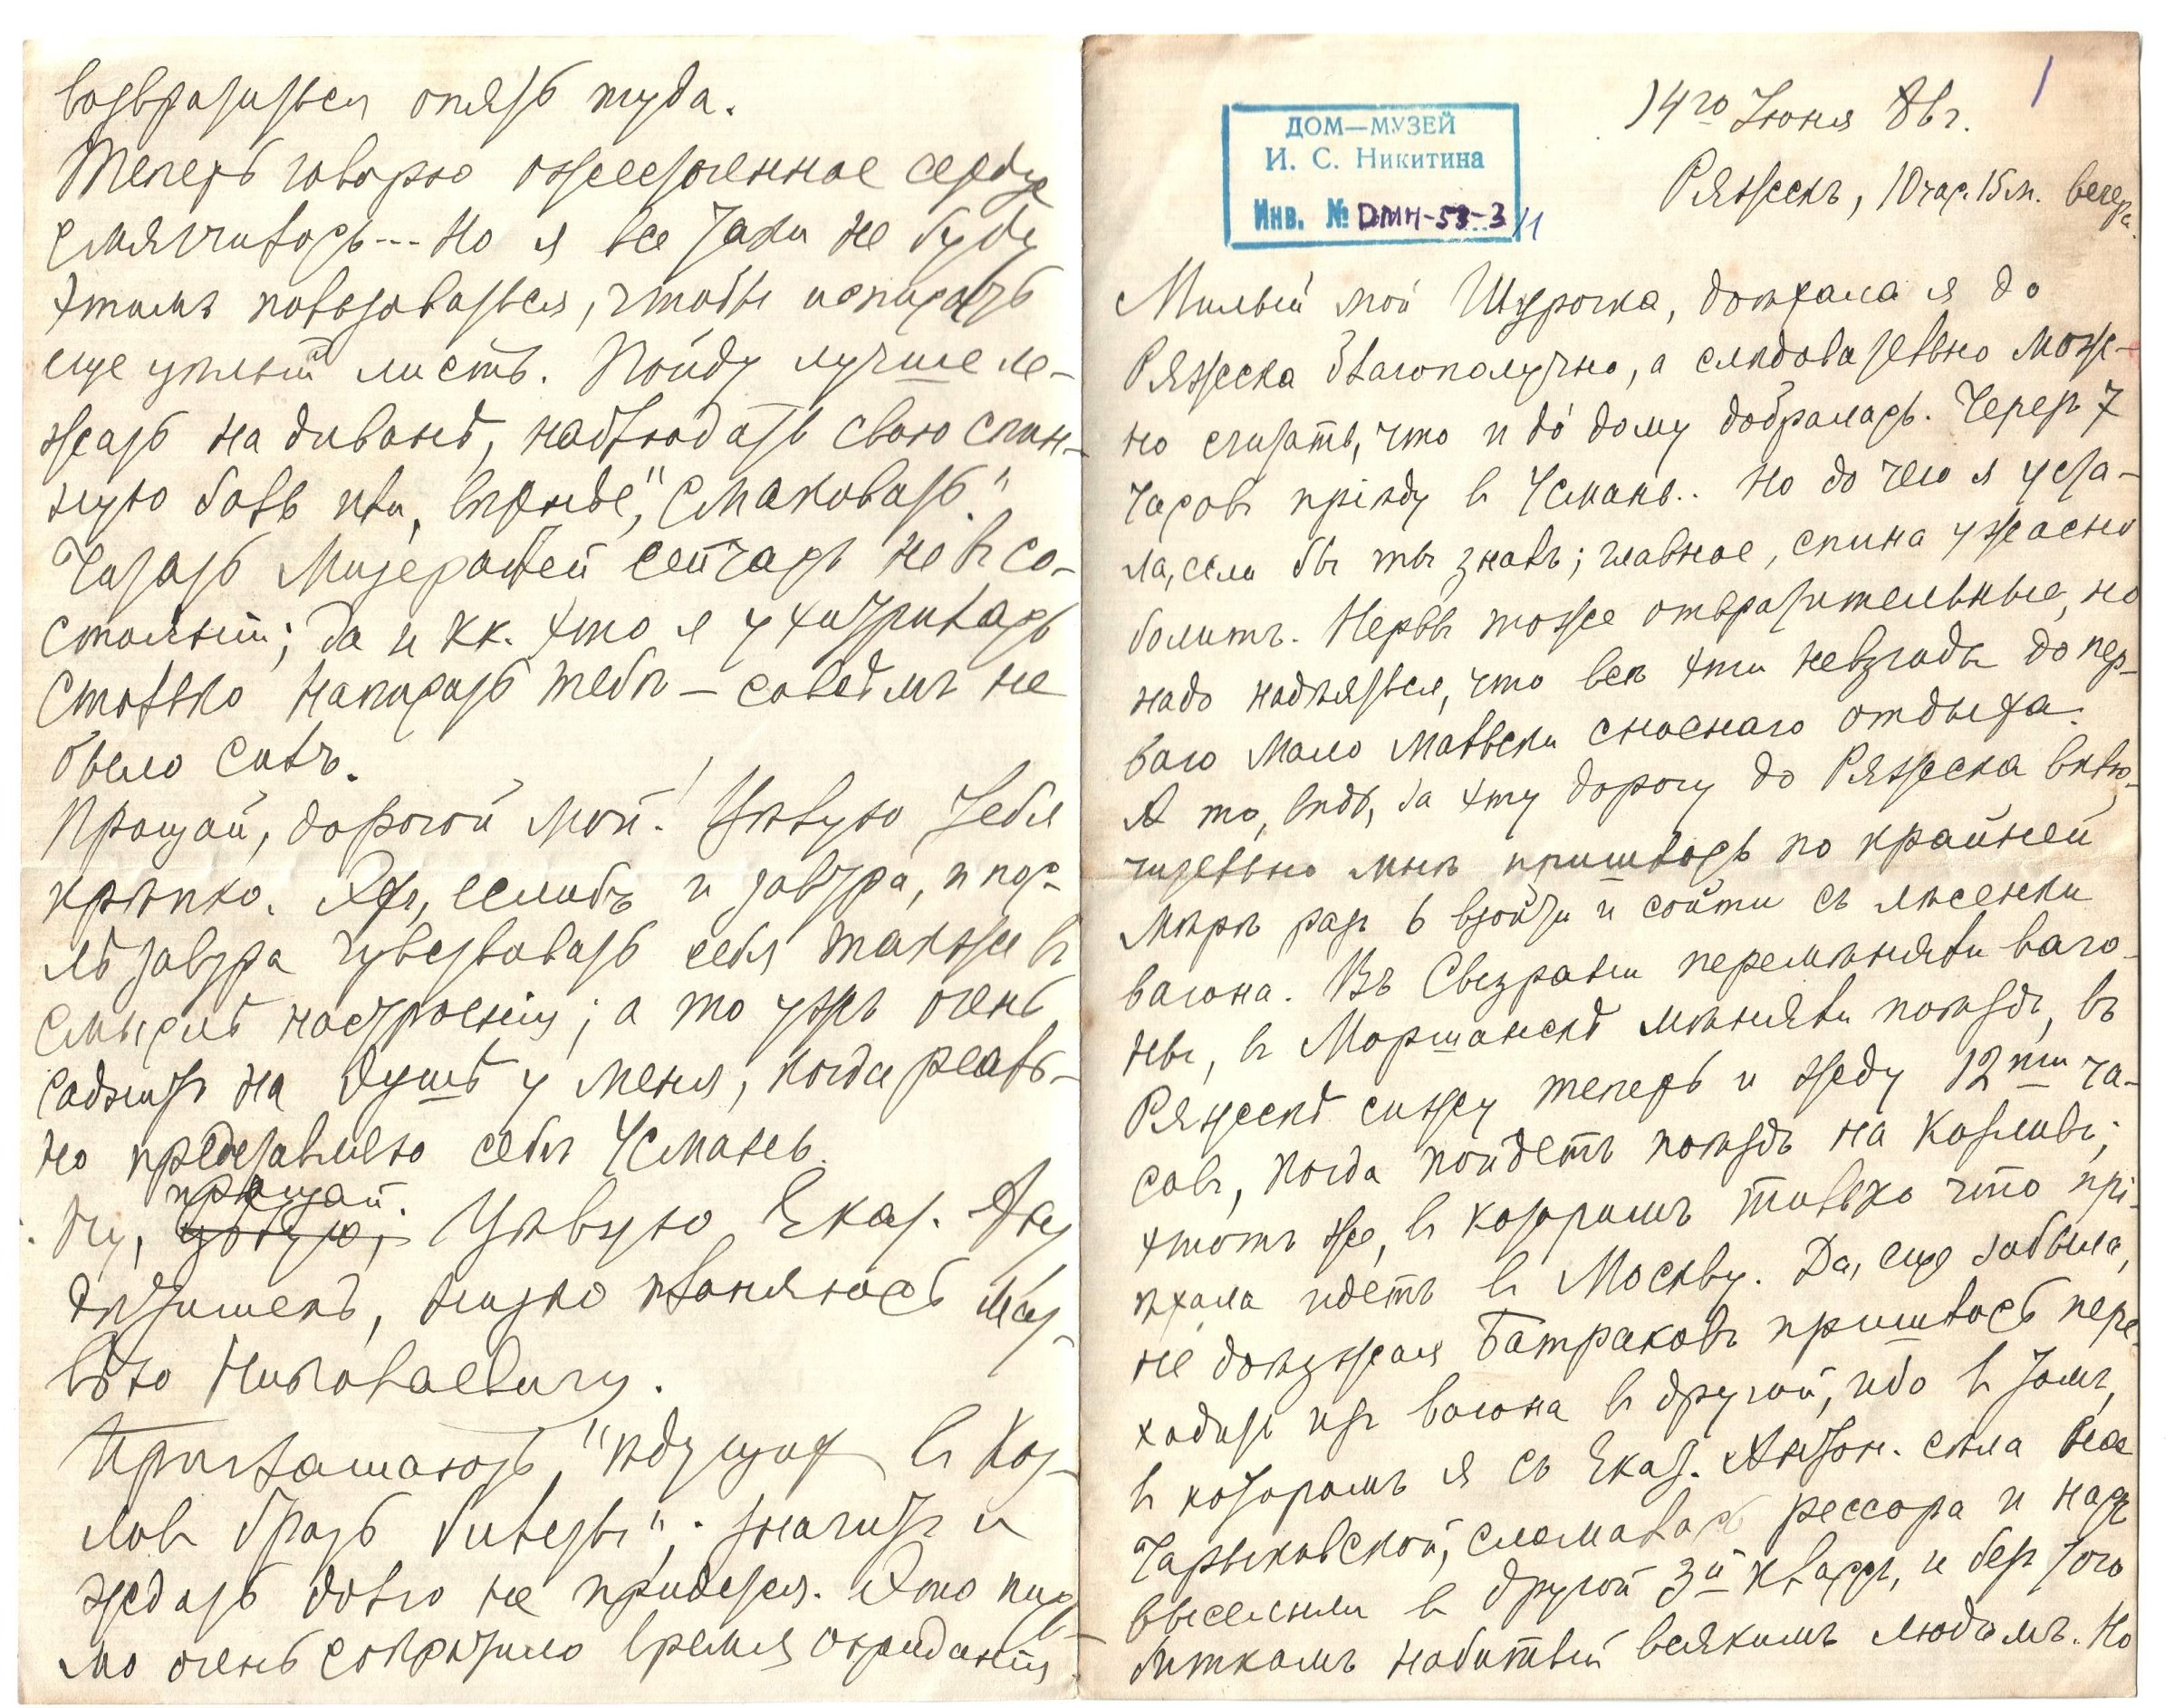 возвратиться опять туда.
Теперь говорю ожесточенное сердце
смягчилось--- Но я все таки не буду
этимъ пользоваться, чтобы исписать
еще цѣлый листъ. Пойду лучше ле-
жать на диванѣ, наблюдать свою спин-
ную боль или, вѣрнѣе, "смаковать".
Читать Мизераблей сейчасъ не въ со-
стояніи; да и кк. это я ухитрилась
столько написать тебѣ – совсѣмъ не
было силъ.
Прощай, дорогой мой! Цѣлую тебя
крѣпко. Эхъ, еслибъ и завтра, и пос-
лѣ завтра чувствовать себя такъ же въ
смыслѣ настроенія; а то ужъ очень
саднитъ на душѣ у меня, когда реаль-
но представляю себѣ Усмань.
прощай.
Ну, цѣлую, Цѣлую Екат. Ант.
дѣтишекъ, низко кланяюсь Мат-
вѣю Николаевичу.
Приглашаютъ "ѣдущих въ Коз-
ловъ брать билеты"; значитъ и
ждать долго не придется. Это пись-
мо очень сократило время ожиданія.
1
14го Іюня 8 г.
Ряжскъ, 10 час. 15 м. вечера.
ДОМ—МУЗЕЙ
И. С. Никитина
Инв. № ДМН-53-3/1
Милый мой Шурочка, доѣхала я до
Ряжска благополучно, а слѣдовательно мож-
но считать, что и до дому добралась. Черезъ 7
часовъ пріѣду въ Усмань.. Но до чего я уста-
ла, если бы ты зналъ; главное, спина ужасно
болитъ. Нервы тоже отвратительные, но
надо надѣяться, что всѣ эти невзгоды до пер-
ваго мало мальски сноснаго отдыха.
А то, вѣдь, за эту дорогу до Ряжска вклю-
чительно мнѣ пришлось по крайней
мѣрѣ разъ 6 взойти и сойти съ лѣсенки
вагона. Въ Сызрани перемѣняли ваго-
ны, въ Моршанскѣ мѣняли поѣздъ, въ
Ряжскѣ сижу теперь и жду 12ти ча-
совъ, когда пойдетъ поѣздъ на Козловъ;
этотъ же, въ которомъ только что прі-
ѣхала идетъ въ Москву. Да, еще забыла,
не доѣзжая Батраковъ пришлось пере-
ходить изъ вагона въ другой, ибо въ томъ,
въ которомъ я съ Екат. Антон. сѣла на
сломалась рессора и насъ
выселили въ другой 3й классъ, и безъ того
биткомъ набитый всякимъ людомъ. Но